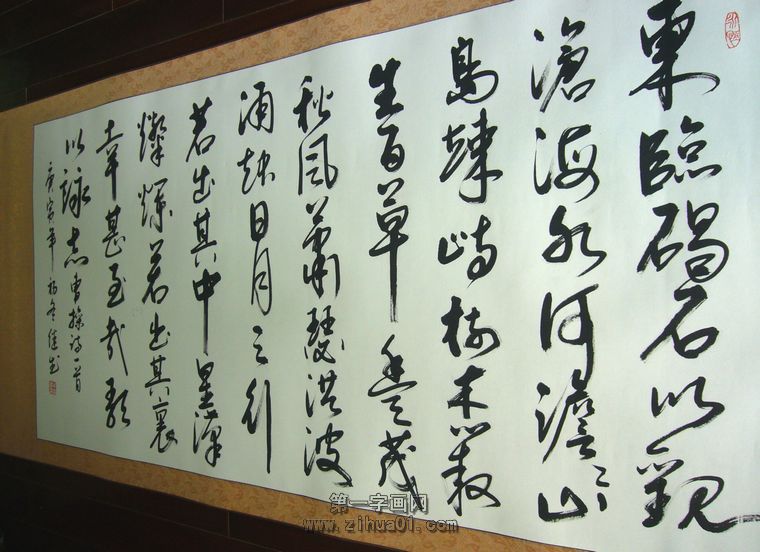 東臨碣石以觀
滄海水何澹々山
島竦峙樹木叢
生百草豐茂
秋風蕭瑟洪波
涌起日月之行
若出其中星漢
燦爛若出其裏
幸甚至哉歌
以詠志曹操詩一首
庚寅年
第一字画网
www.zihua01.com